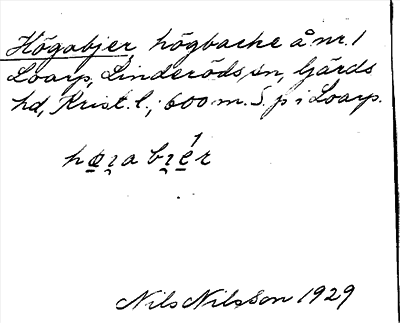 Högabjer, högbacke å nr. 1
Loarp, Linderöds sn, Gärds
hd, Krist. l.; 600 m. S. p i Loarp.
Nils Nilsson 1929